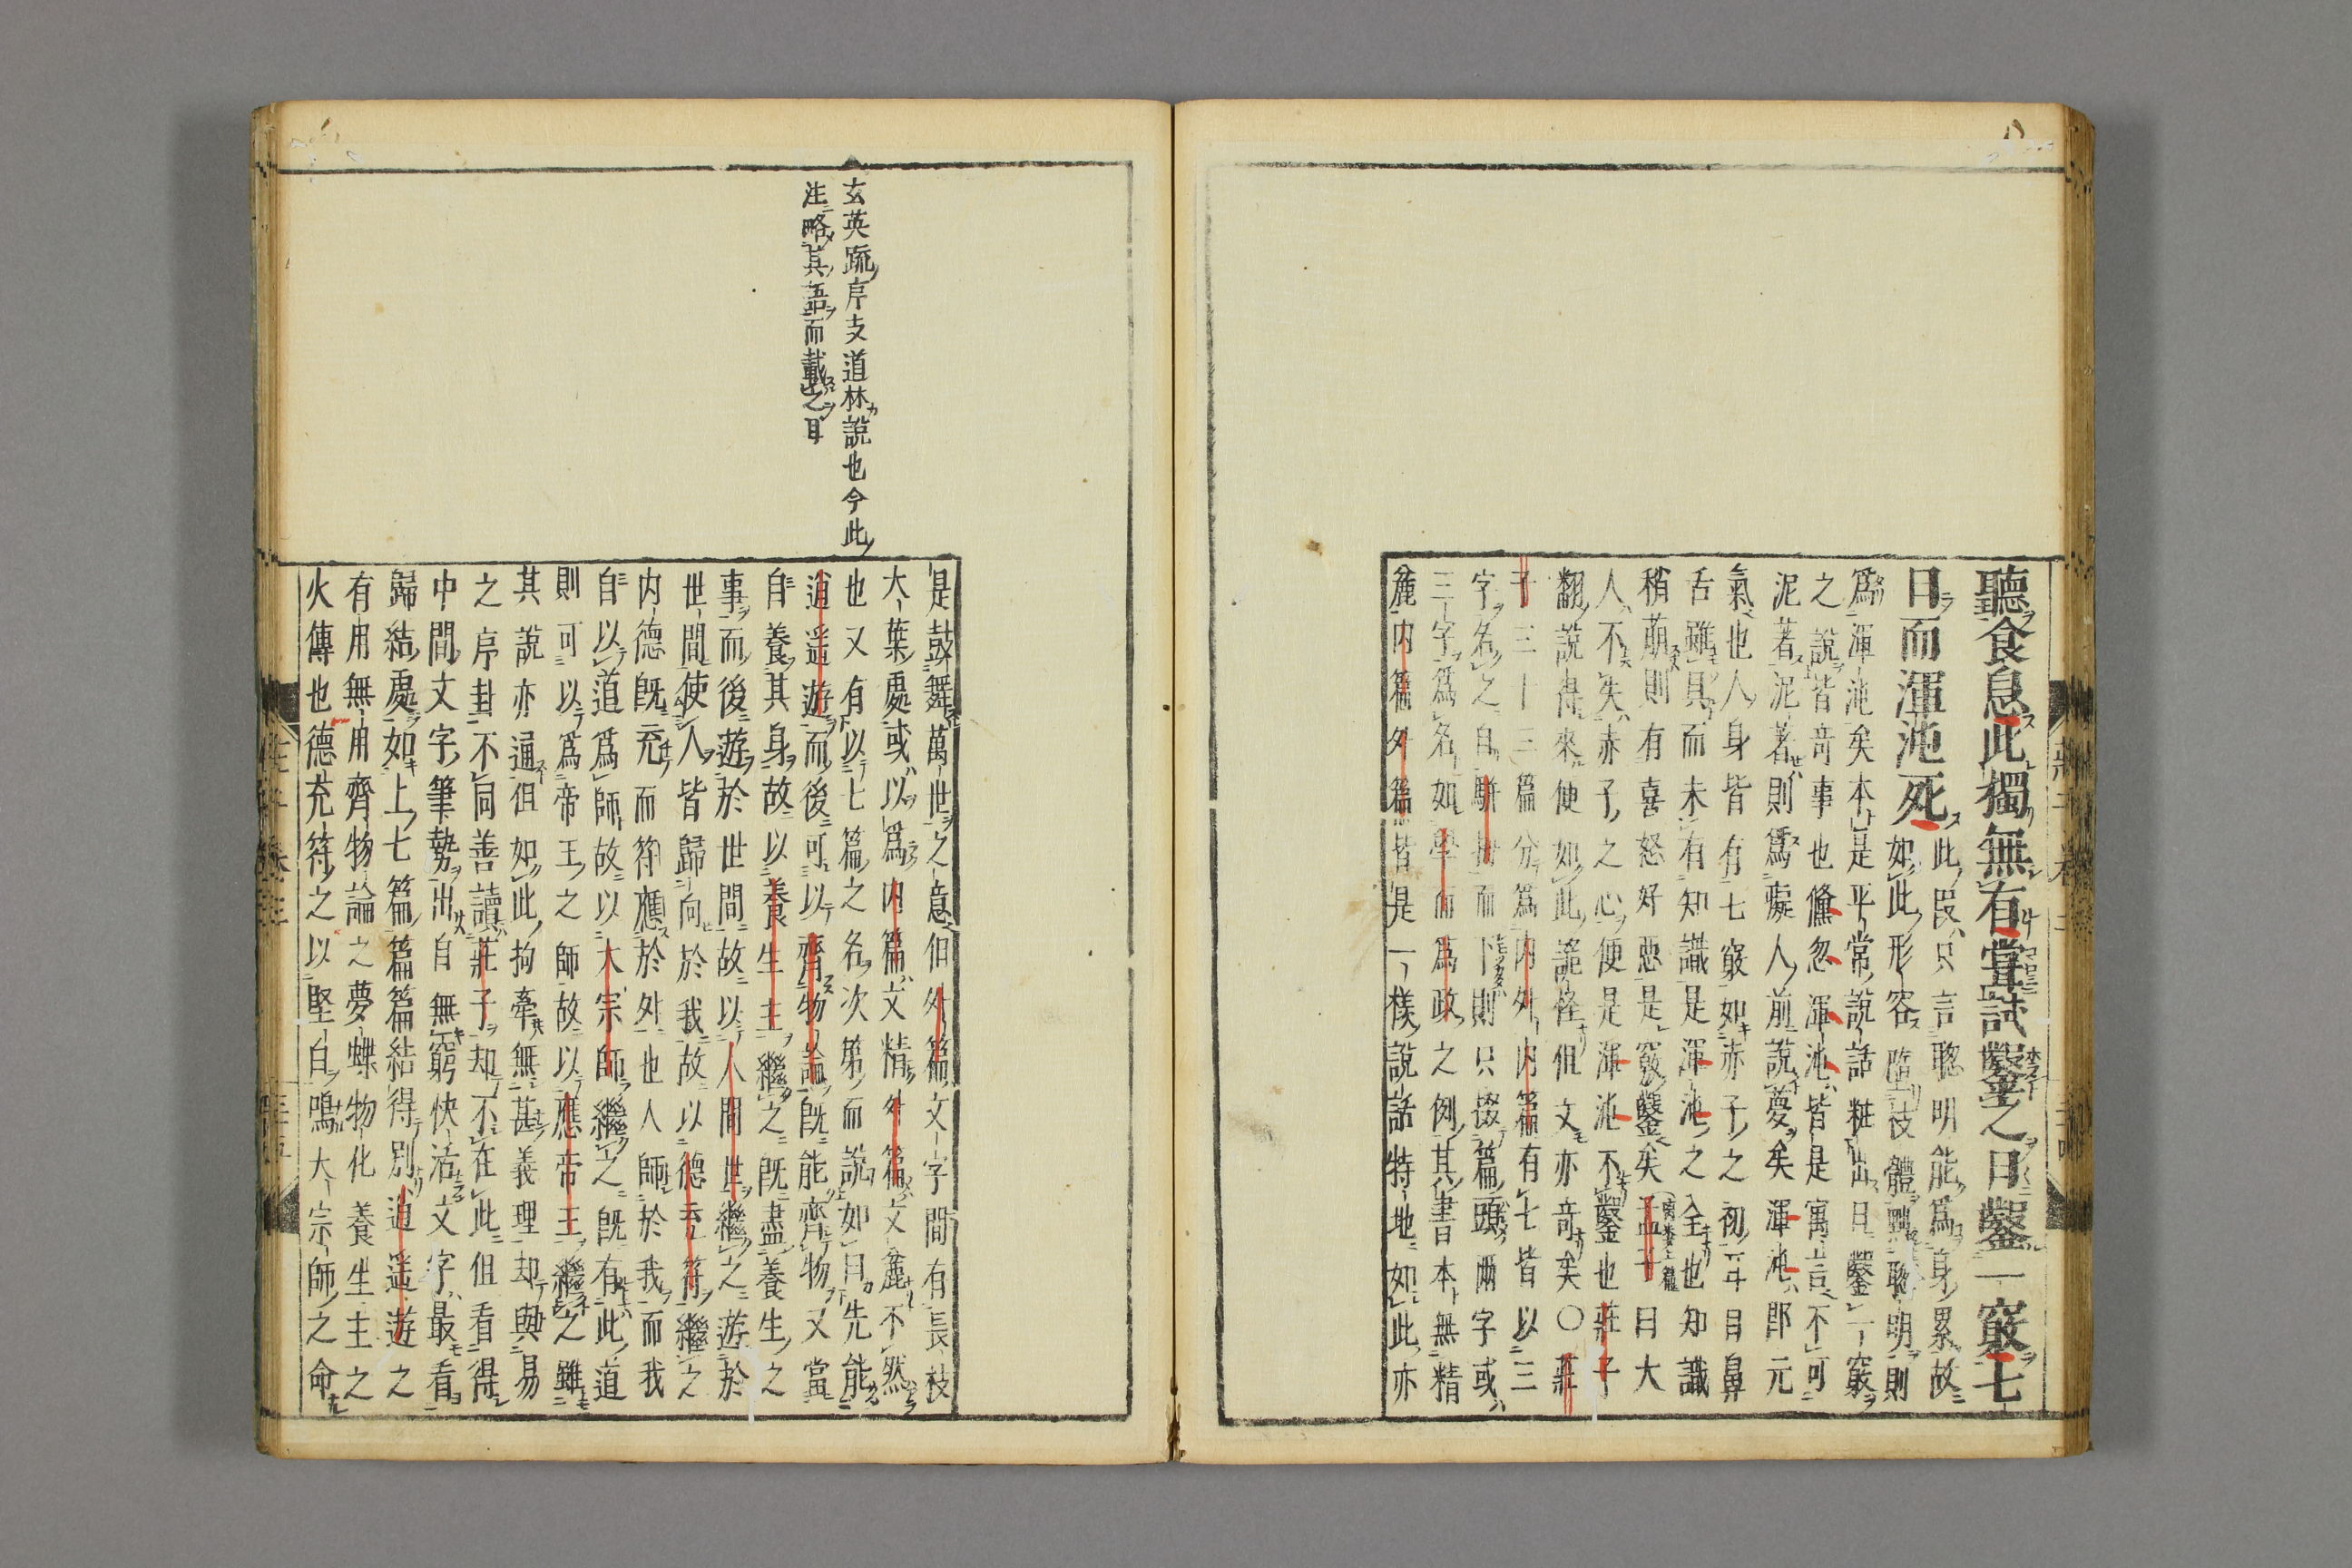 聽食息此獨無有嘗試鑿之日鑿一竅七
日而渾沌死此段只言聰明能爲身累故
如此形容墮枝體黜聰明則
爲渾沌矣本是平常說話粧出日鑿一竅
之說皆竒事也儵忽渾沌皆是寓言不可
泥著泥著則爲癡人前說夢矣渾沌即元
氣也人身皆有七竅如赤子之初耳目鼻
舌雖具而未有知識是渾沌之全也知識
稍萌則有喜怒好惡是竅鑿矣孟子曰大
人不失赤子之心便是渾沌不鑿也莊子
翻說得來便如此詭怪但文亦竒矣〇莊
子三十三篇分爲内外内篇有七皆以三
字名之自駢拇而下則只掇篇頭兩字或
三字爲名如學而爲政之例其書本無精
麁内篇外篇皆是一樣說話特地如此亦
是鼓舞萬世之意但外篇文字間有長枝
大葉處或以爲内篇文精外篇文麁不然
也又有以七篇之名次第而說如曰先能
逍遥遊而後可以齊物論既能齊物又當
自養其身故以養生主繼之既盡養生之
事而後遊於世間故以人間世繼之遊於
世間使人皆歸向於我故以德充符繼之
内德既充而符應於外也人師於我而我
自以道爲師故以大宗師繼之既有此道
則可以爲帝王之師故以應帝王繼之雖
其說亦通但如此拘牽無甚義理却與易
之序卦不同善讀莊子却不在此但看得
中間文字筆勢出自無窮快活文字最看
歸結處如上七篇篇篇結得別逍遥遊之
有用無用齊物論之夢蝶物化養生主之
火傳也德充符之以堅白鳴大宗師之命
玄英疏序支道林說也今此
注略其語而載之耳